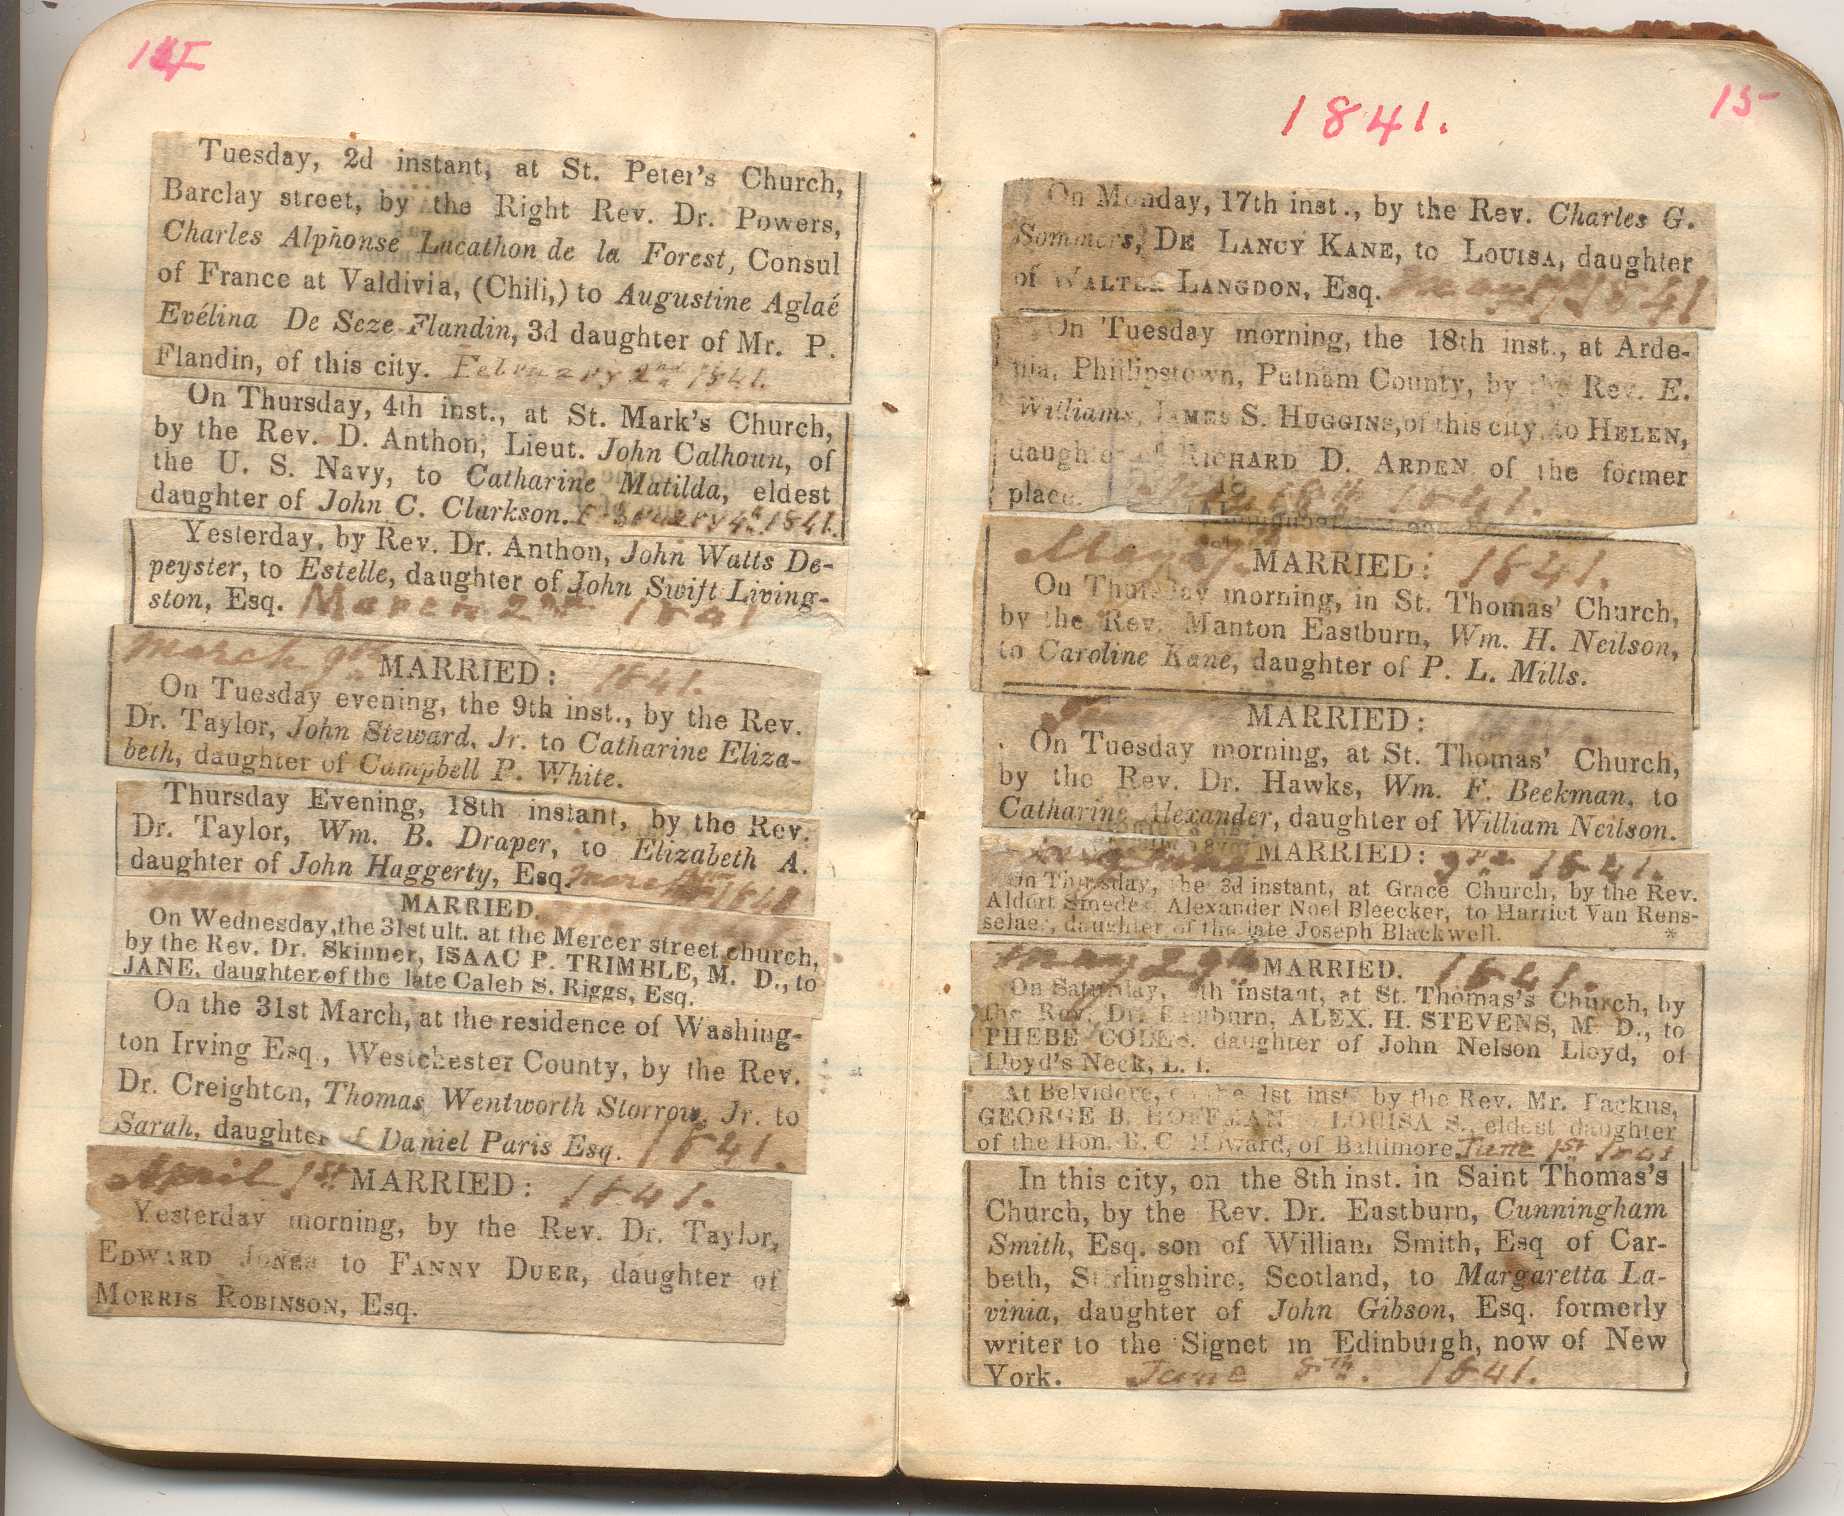 14
Tuesday, 2d instant, at St. Peter's Church,
Barclay street, by the Right Rev. Dr. Powers,
Charles Alphonse Lacathon de la Forest, Consul
of France at Valdivia, (Chili,) to Augustine Aglaé
Evélina De Seze Flandin, 3d daughter of Mr. P.
Flandin, of this city. February 2nd 1841.
On Thursday, 4th inst., at St. Mark's Church,
by the Rev. D. Anthon, Lieut. John Calhoun, of
the U. S. Navy, to Catharine Matilda, eldest
daughter of John C. Clarkson. February 4th 1841.
Yesterday, by Rev. Dr. Anthon, John Watts De-
peyster, to Estelle, daughter of John Swift Living-
ston, Esq. March 2nd 1841
March 9th MARRIED: 1841.
On Tuesday evening, the 9th inst., by the Rev.
Dr. Taylor, John Steward, Jr. to Catharine Eliza-
beth, daughter of Campbell P. White.
Thursday Evening, 18th instant, by the Rev.
Dr. Taylor, Wm. B. Draper, to Elizabeth A.
daughter of John Haggerty, Esq. March
MARRIED.
On Wednesday, the 31st ult. at the Mercer street church,
by the Rev. Dr. Skinner, ISAAC P. TRIMBLE, M. D., to
JANE, daughter of the late Caleb S. Riggs, Esq.
On the 31st March, at the residence of Washing-
ton Irving Esq., Westchester County, by the Rev.
Dr. Creighton, Thomas Wentworth Storrow, Jr. to
Sarah, daughter of Daniel Paris Esq. 1841.
April 1st MARRIED: 1841.
Yesterday morning, by the Rev. Dr. Taylor,
EDWARD JONES to FANNY DUER, daughter of
MORRIS ROBINSON, Esq.
15
1841.
On Monday, 17th inst., by the Rev. Charles G.
Sommers, DE LANCY KANE, to LOUISA, daughter
of WALTER LANGDON, Esq. May 1841
On Tuesday morning, the 18th inst., at Arde-
nia, Phillipstown, Putnam County, by the Rev. E.
Williams, JAMES S. HUGGINS, of this city, to HELEN,
daughter of RICHARD D. ARDEN of the former
place. 18th 1841.
May MARRIED: 1841.
On Thursday morning, in St. Thomas' Church,
by the Rev. Manton Eastburn, Wm. H. Neilson,
to Caroline Kane, daughter of P. L. Mills.
MARRIED:
On Tuesday morning, at St. Thomas' Church,
by the Rev. Dr. Hawks, Wm. F. Beekman, to
Catharine Alexander, daughter of William Neilson.
MARRIED: 1841.
On Thursday, the 3d instant, at Grace Church, by the Rev.
Aldert Smedes, Alexander Noel Bleecker, to Harriet Van Rens-
selaer, daughter of the late Joseph Blackwell. *
May 29th MARRIED. 1841.
On Saturday, instant, at St. Thomas's Church, by
the Rev. Dr. Eastburn, ALEX. H. STEVENS, M. D., to
PHEBE COLES, daughter of John Nelson Lloyd, of
Lloyd's Neck, L. I.
At Belvidere, on the 1st inst. by the Rev. Mr. Backus,
GEORGE B. HOFFMAN to LOUISA S., eldest daughter
of the Hon. B. C. Howard, of Baltimore June 1st 1841
In this city, on the 8th inst. in Saint Thomas's
Church, by the Rev. Dr. Eastburn, Cunningham
Smith, Esq. son of William Smith, Esq of Car-
beth, Stirlingshire, Scotland, to Margaretta La-
vinia, daughter of John Gibson, Esq. formerly
writer to the Signet in Edinburgh, now of New
York. June 8th. 1841.